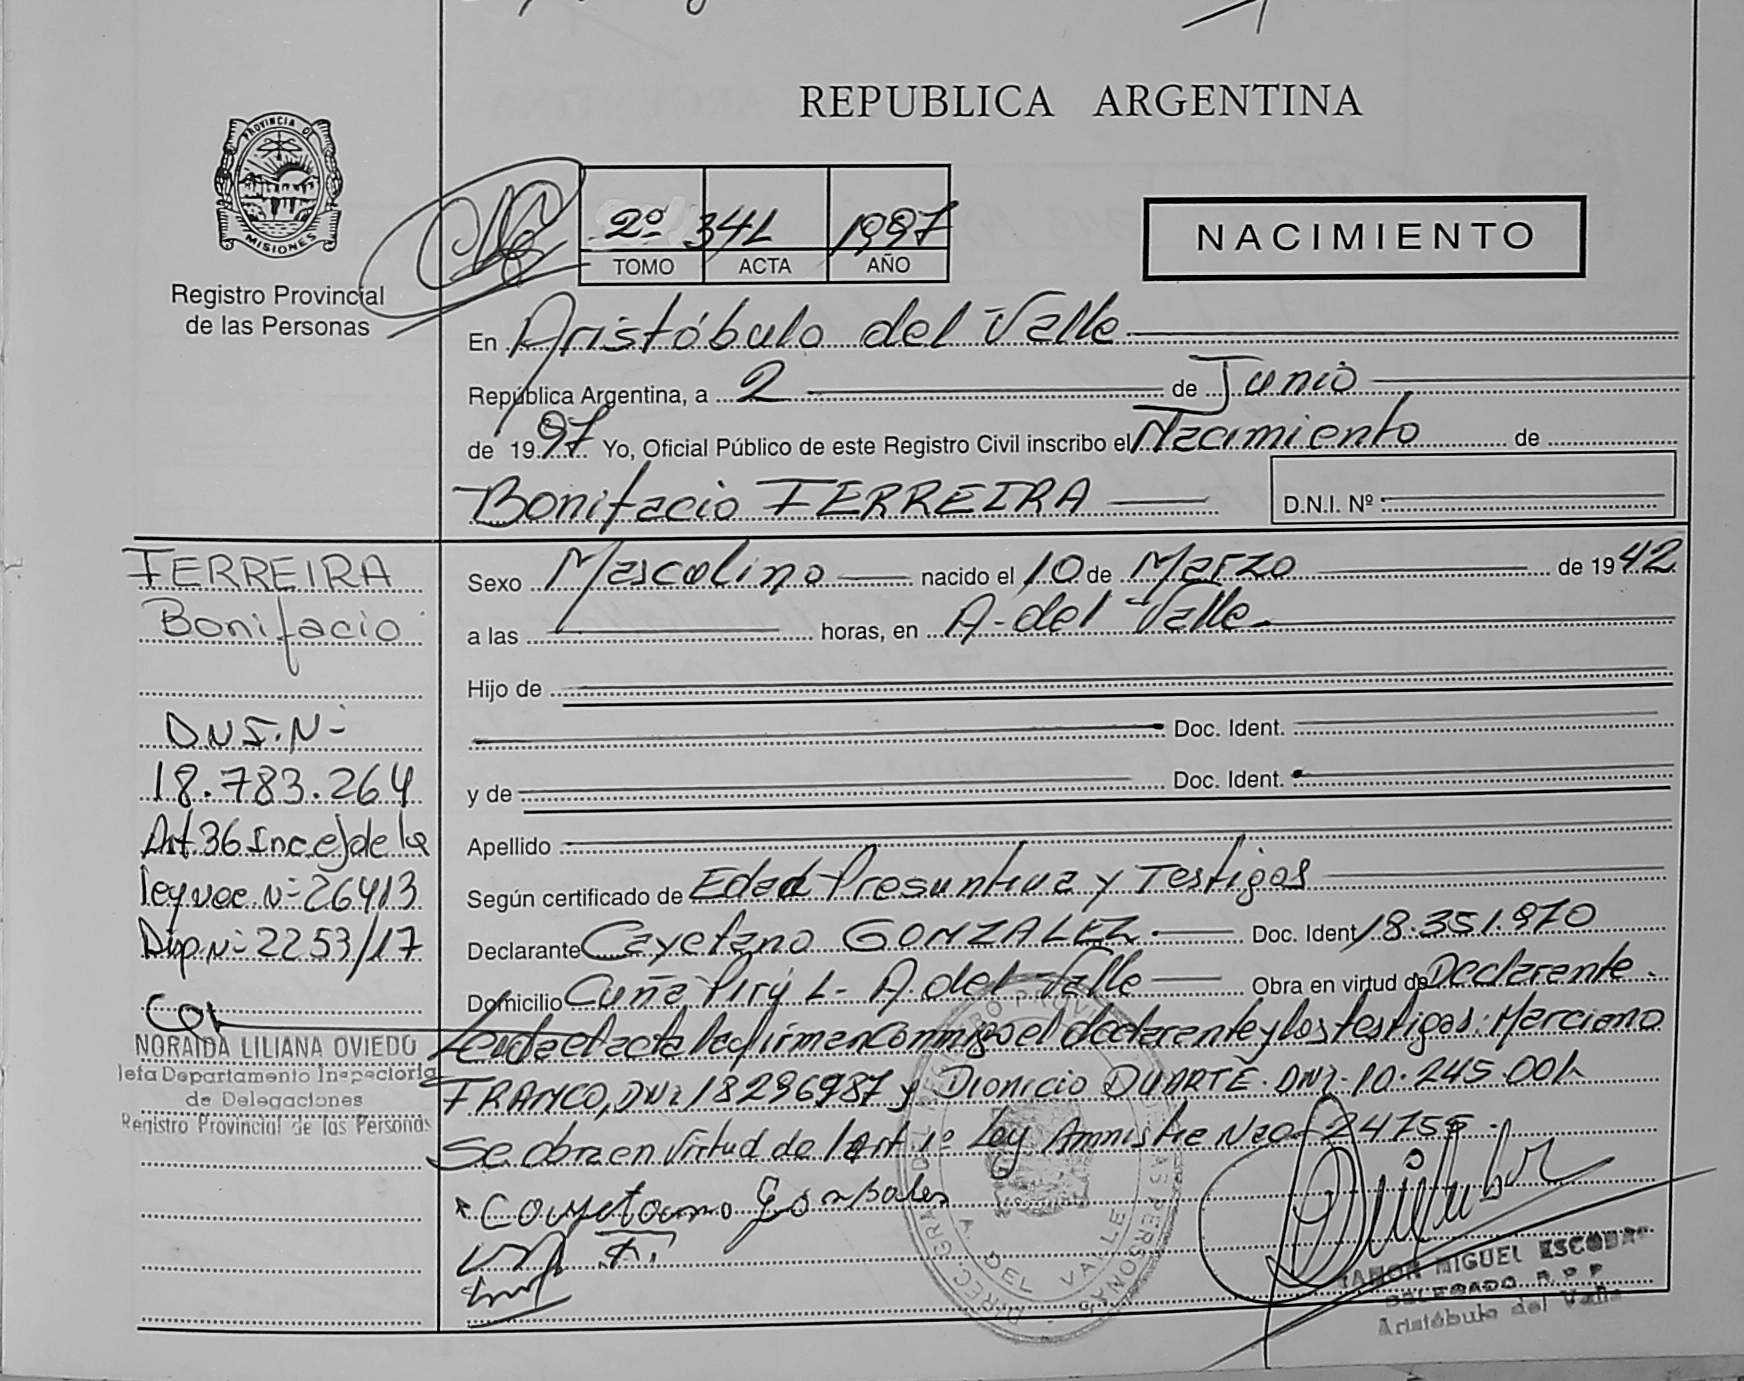 REPUBLICA ARGENTINA
PROVINCIA DE
MISIONES
Registro Provincial
de las Personas
2º 1997
TOMO ACTA AÑO
NACIMIENTO
En Aristóbulo del Valle
República Argentina, a 2 de Junio
de 1997 Yo, Oficial Público de este Registro Civil inscribo el Nacimiento de
Bonifacio FERREIRA D.N.I. Nº
Sexo Mascolino nacido el 10 de Marzo de 1942
a las horas, en A. del Valle
Hijo de
Doc. Ident.
y de Doc. Ident.
Apellido
Según certificado de Edad Presuntiva y Testigos
Declarante Cayetano GONZALEZ Doc. Ident 18.351.970
Domicilio Cuña Pirú L- A. del Valle Obra en virtud de Declarente.
Leida el acta la firman conmigo el declarente y los testigos: Marciano
FRANCO, DNI 18296987 y Dionicio DUARTE. DNI. 10.245.001
Se obra en virtud del Art 1º Ley Amnistie Nro 24755
Cayetano Gonsales
FERREIRA
Bonifacio
D.N.I. Nº
18.783.264
Art. 36 Inc c) de la
ley nac. Nº 26413
Disp. Nº 2253/17
NORAIDA LILIANA OVIEDO
Jefa Departamento Inspectoria
de Delegaciones
Registro Provincial de las Personas
RAMON MIGUEL ESCOBAR
DELEGADO R.P.P
Aristóbulo del Valle
A. DEL VALLE